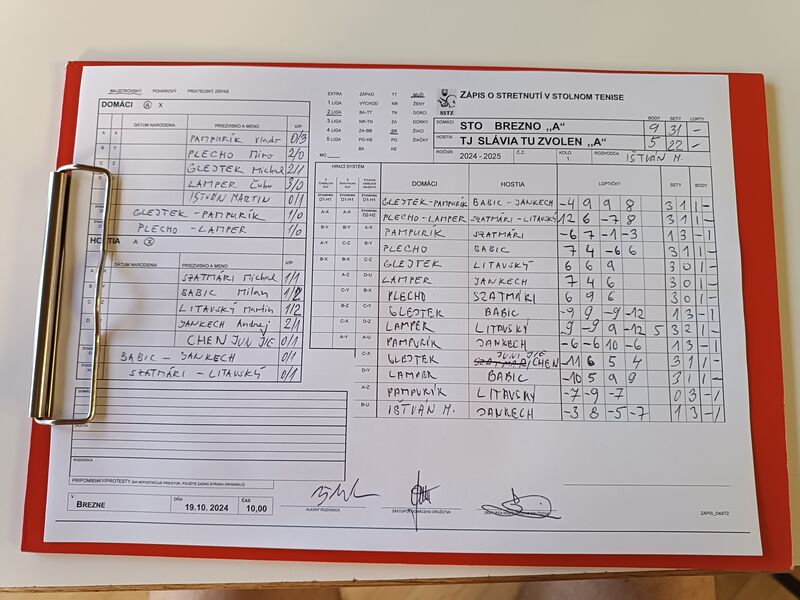 MAJSTROVSKÝ POHÁROVÝ PRIATEĽSKÝ ZÁPAS
DOMÁCI A X
DÁTUM NARODENIA PRIEZVISKO A MENO V/P
A X PAMPURÍK Vlado 0/3
B Y PLECHO Miro 2/0
C Z GLEJTEK Michal 2/1
D LAMPER Ľubo 3/0
IŠTVÁN MARTIN 0/1
GLEJTEK - PAMPURÍK 1/0
PLECHO - LAMPER 1/0
HOSTIA A X
DÁTUM NARODENIA PRIEZVISKO A MENO V/P
SZATMÁRI Michal 1/1
BABIC Milan 1/2
LITAVSKÝ Martin 1/2
JANKECH Andrej 2/1
CHEN JUN JIE 0/1
BABIC - JANKECH 0/1
SZATMÁRI - LITAVSKÝ 0/1
DOMÁCI
HOSTIA
ROZHODCA
PRIPOMIENKY/PROTESTY (AK NEPOSTAČUJE PRIESTOR, POUŽITE ZADNÚ STRANU ORIGINÁLU)
V BREZNE DŇA 19.10. 2024 ČAS 10,00
HLAVNÝ ROZHODCA
ZÁSTUPCA DOMÁCEHO DRUŽSTVA
ZAPIS_OsSTZ
EXTRA ZÁPAD TT MUŽI
1.LIGA VÝCHOD NR ŽENY
2.LIGA BA-TT TN DORCI
3.LIGA NR-TN ZA DORKY
4.LIGA ZA-BB BB ŽIACI
5.LIGA PO-KE PO ŽIAČKY
MO BA KE
SSTZ
ZÁPIS O STRETNUTÍ V STOLNOM TENISE
BODY SETY LOPTY
DOMÁCI STO BREZNO „A" 9 31 -
HOSTIA TJ SLÁVIA TU ZVOLEN „A" 5 22 -
ROČNÍK 2024 - 2025 Č.Z. KOLO ROZHODCA IŠTVÁN M.
HRACÍ SYSTÉM
DOMÁCI HOSTIA LOPTIČKY SETY BODY
GLEJTEK-PAMPURÍK BABIC - JANKECH -4 9 9 8 3 1 1 -
PLECHO - LAMPER SZATMÁRI - LITAVSKÝ 12 6 -7 8 3 1 1 -
PAMPURÍK SZATMÁRI -6 7 -1 -3 1 3 - 1
PLECHO BABIC 7 4 -6 6 3 1 1 -
GLEJTEK LITAVSKÝ 6 6 9 3 0 1 -
LAMPER JANKECH 7 4 6 3 0 1 -
PLECHO SZATMÁRI 6 9 6 3 0 1 -
GLEJTEK BABIC -9 9 -9 -12 1 3 - 1
LAMPER LITAVSKÝ -9 -9 9 12 5 3 2 1 -
PAMPURÍK JANKECH -6 -6 10 -6 1 3 - 1
GLEJTEK JUN JIE CHEN -11 6 5 4 3 1 1 -
LAMPER BABIC -10 5 9 9 3 1 1 -
PAMPURÍK LITAVSKÝ -7 -9 -7 0 3 - 1
IŠTVÁN M. JANKECH -3 8 -5 -7 1 3 - 1